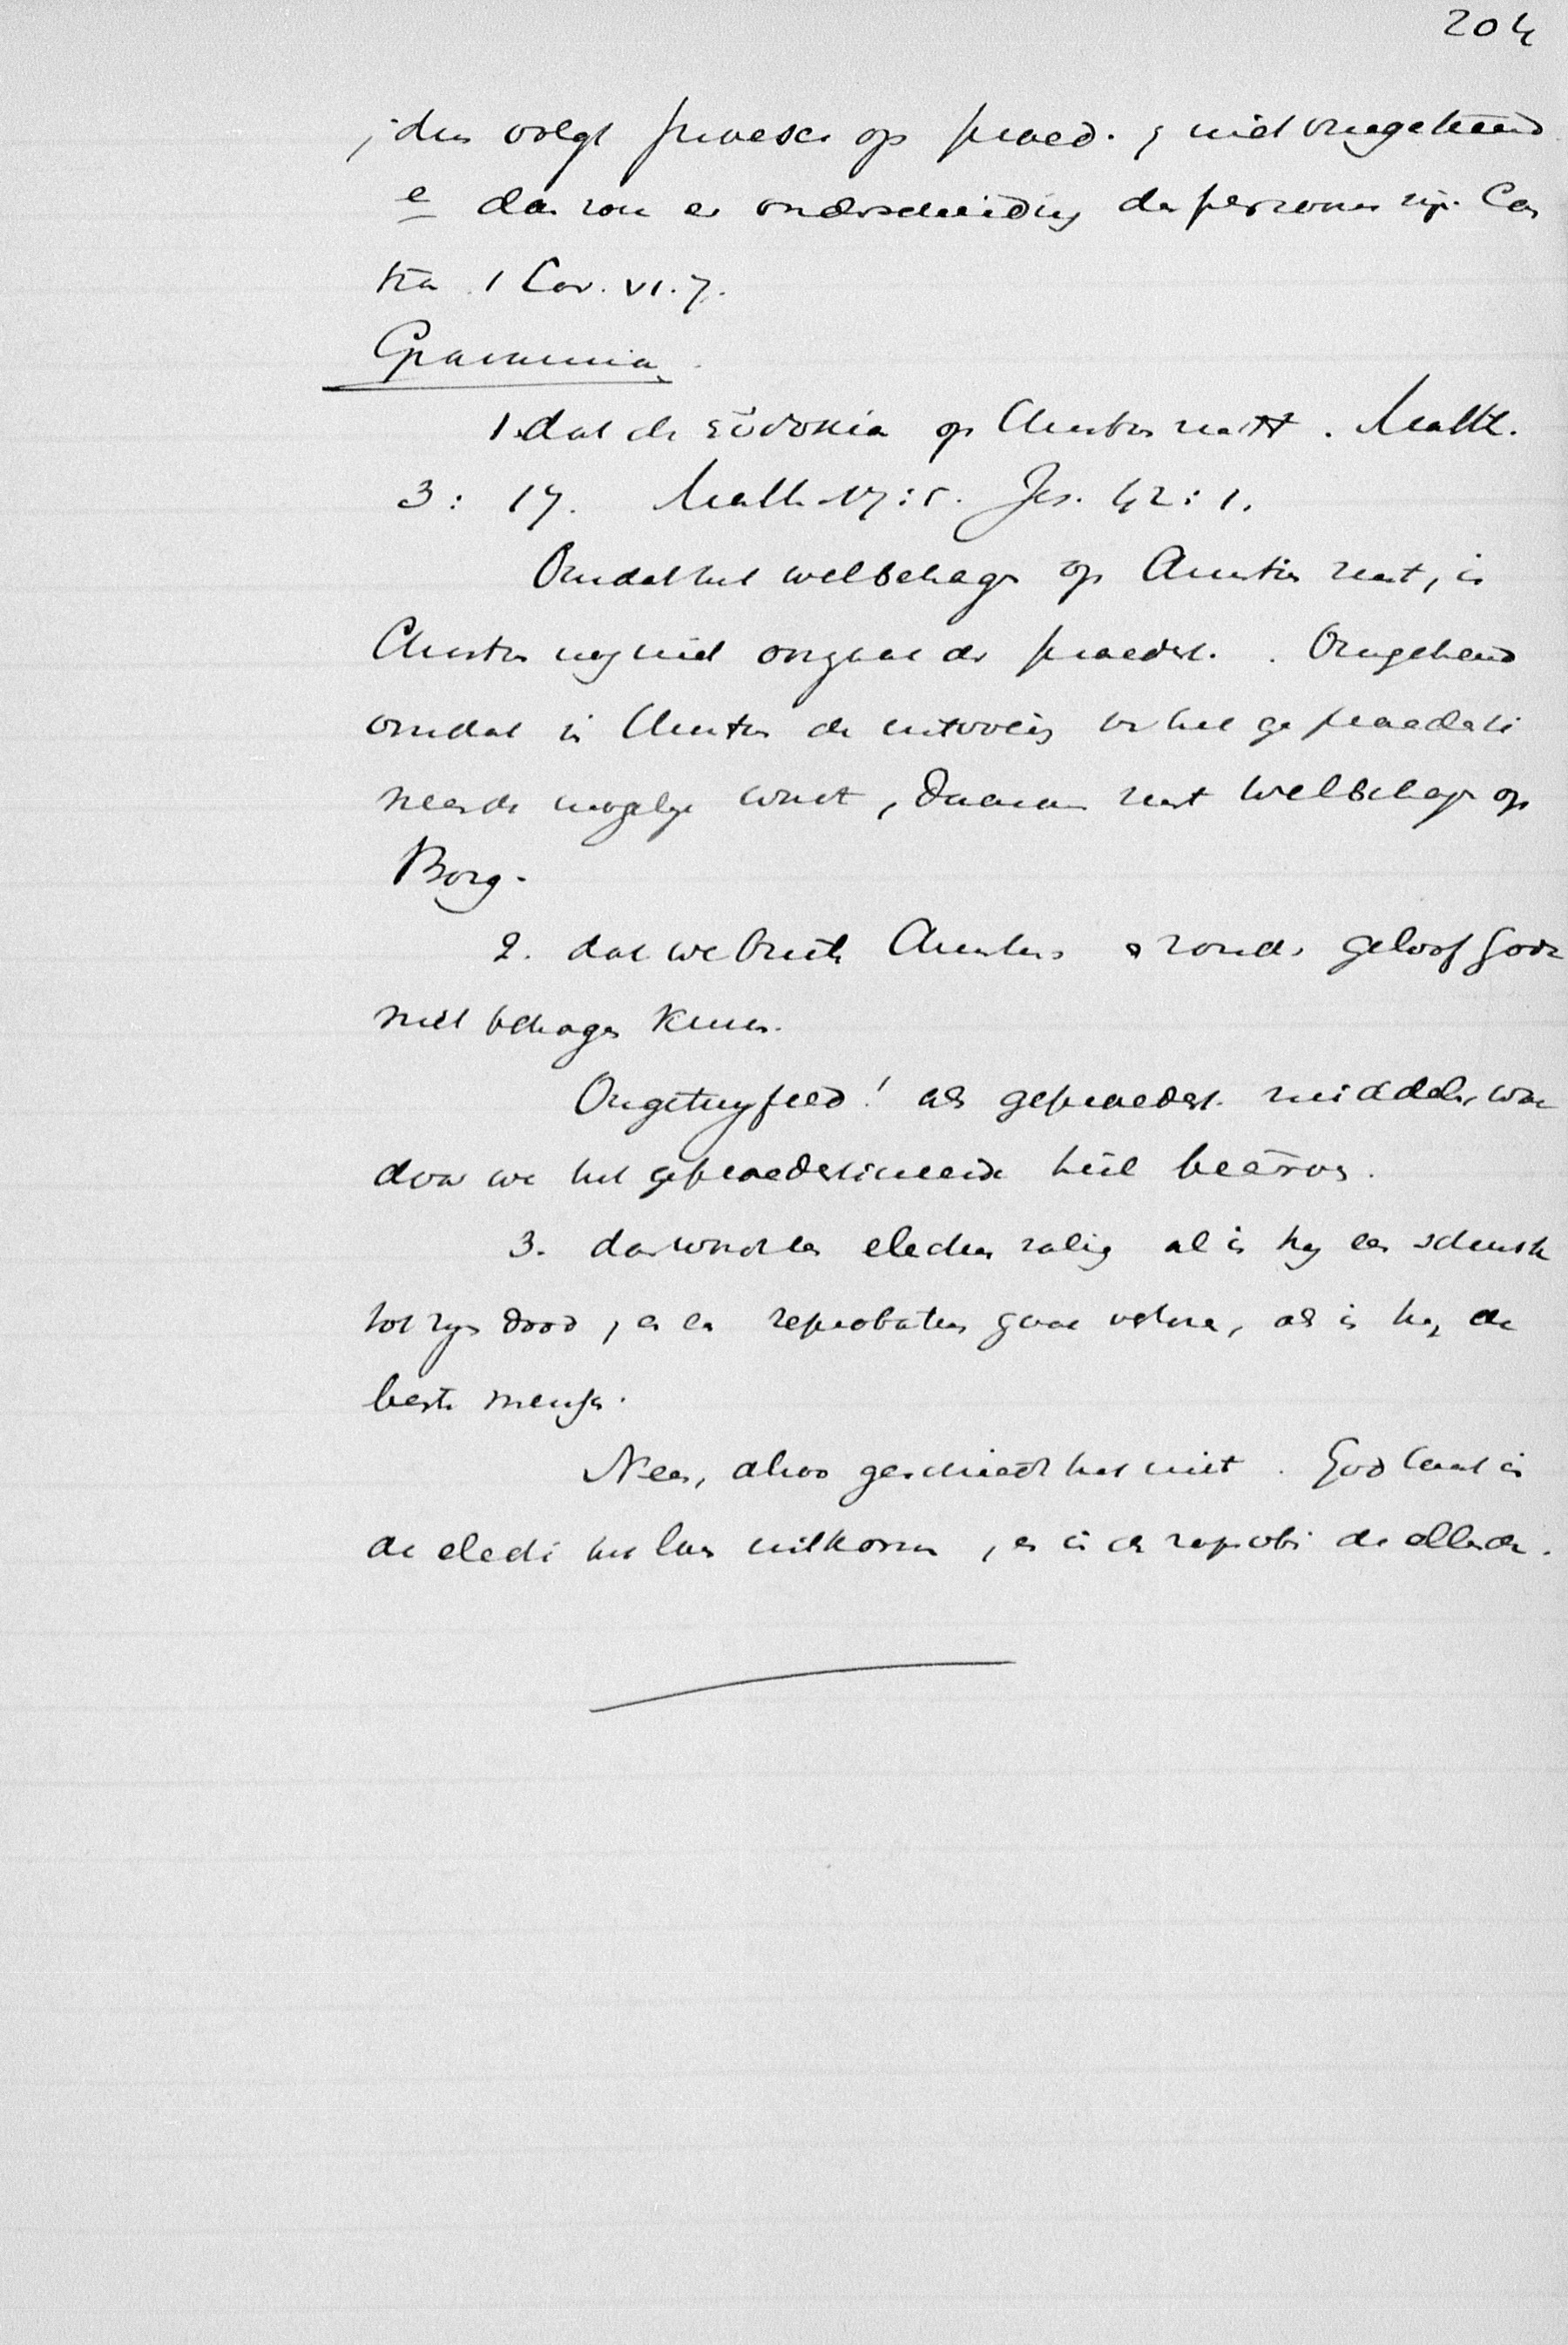 204
; dus volgt praesci op praed. ; niet omgekeerd
e dan zou er onderscheiding der personen zijn. Con
tra 1 Cor. VI. 7.
Gravamina.
1. dat de εὐδοκία op Christus rust. Matth.
3 : 17. Matth. 17 : 5. Jes. 42 : 1.
Omdat het welbehagen op Christus rust, is
Christus nog niet oorzaak der praedest. . Omgekeerd
omdat in Christus de uitvoering v. h. gepraedesti
neerde mogelijk wordt, daarom rust welbehagen op
Borg.
2. dat we buiten Christus zonder geloof Gode
niet behagen kunnen.
Ongetwyfeld! als gepraedest. middel, waar
door we het gepraedestineerde heil beërven.
3. dan wordt een electus zalig al is hy een schurk
tot zyn dood, en een reprobatus gaat verloren, al is hy de
beste mensch.
Neen, alzoo geschiedt het niet. God laat in
de electi het uitkomen, en in de reprobi de ellende.